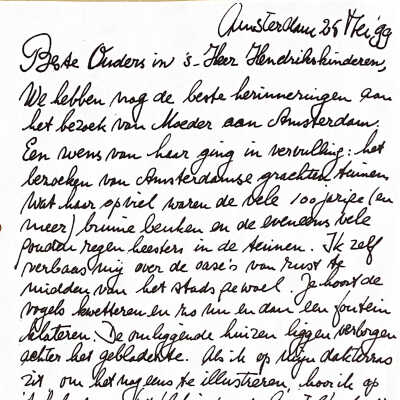 Amsterdam 25 Mei '99
Beste Ouders in 's-Heer Hendrikskinderen,
We hebben nog de beste herinneringen aan
het bezoek van Moeder aan Amsterdam.
Een wens van haar ging in vervulling: het
bezoeken van Amsterdamse grachten tuinen
Wat haar opviel waren de vele 100 jarige (en
meer) bruine beuken en de eveneens vele
gouden regen heesters in de tuinen. Ik zelf
verbaas mij over de oase's van rust te
midden van het stads gewoel. Je hoort de
vogels kwetteren en zo nu en dan een fontein
klateren. De omliggende huizen liggen verborgen
achter het gebladerte. Als ik op mijn dakterras
zit, om het nog eens te illustreren, hoor ik op